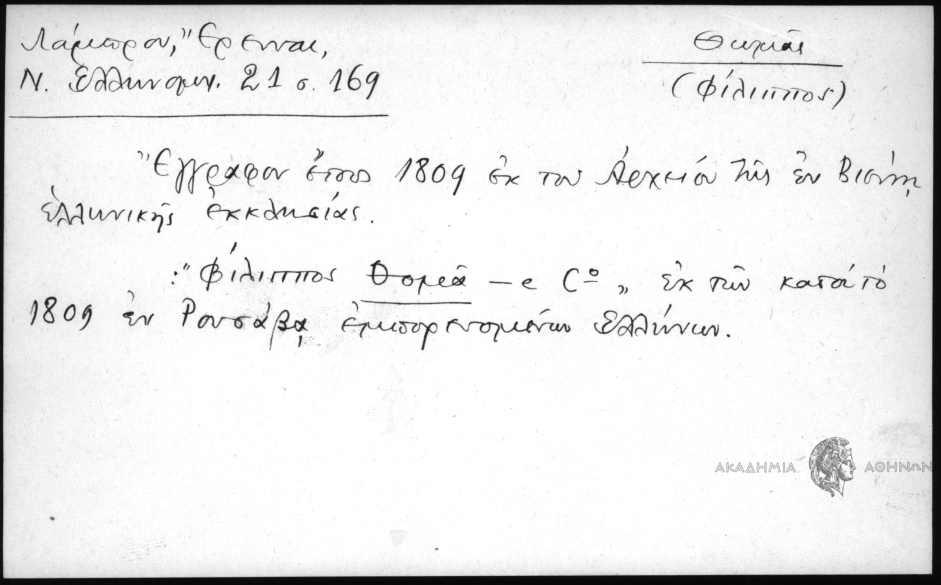 Λάμπρου, "Έρευναι,
Ν. Ελληνομν. 21 σ. 169
Θωμᾶς
(Φίλιππος)
Ἔγγραφον ἔτους 1809 ἐκ τοῦ Ἀρχείου τῆς ἐν Βιέννῃ
ἑλληνικῆς ἐκκλησίας.
:"Φίλιππος Θομᾶ – e Cº „ ἐκ τῶν κατὰ τὸ
1809 ἐν ἐμπορευομένων Ἑλλήνων.
ΑΚΑΔΗΜΙΑ ΑΘΗΝΩΝ